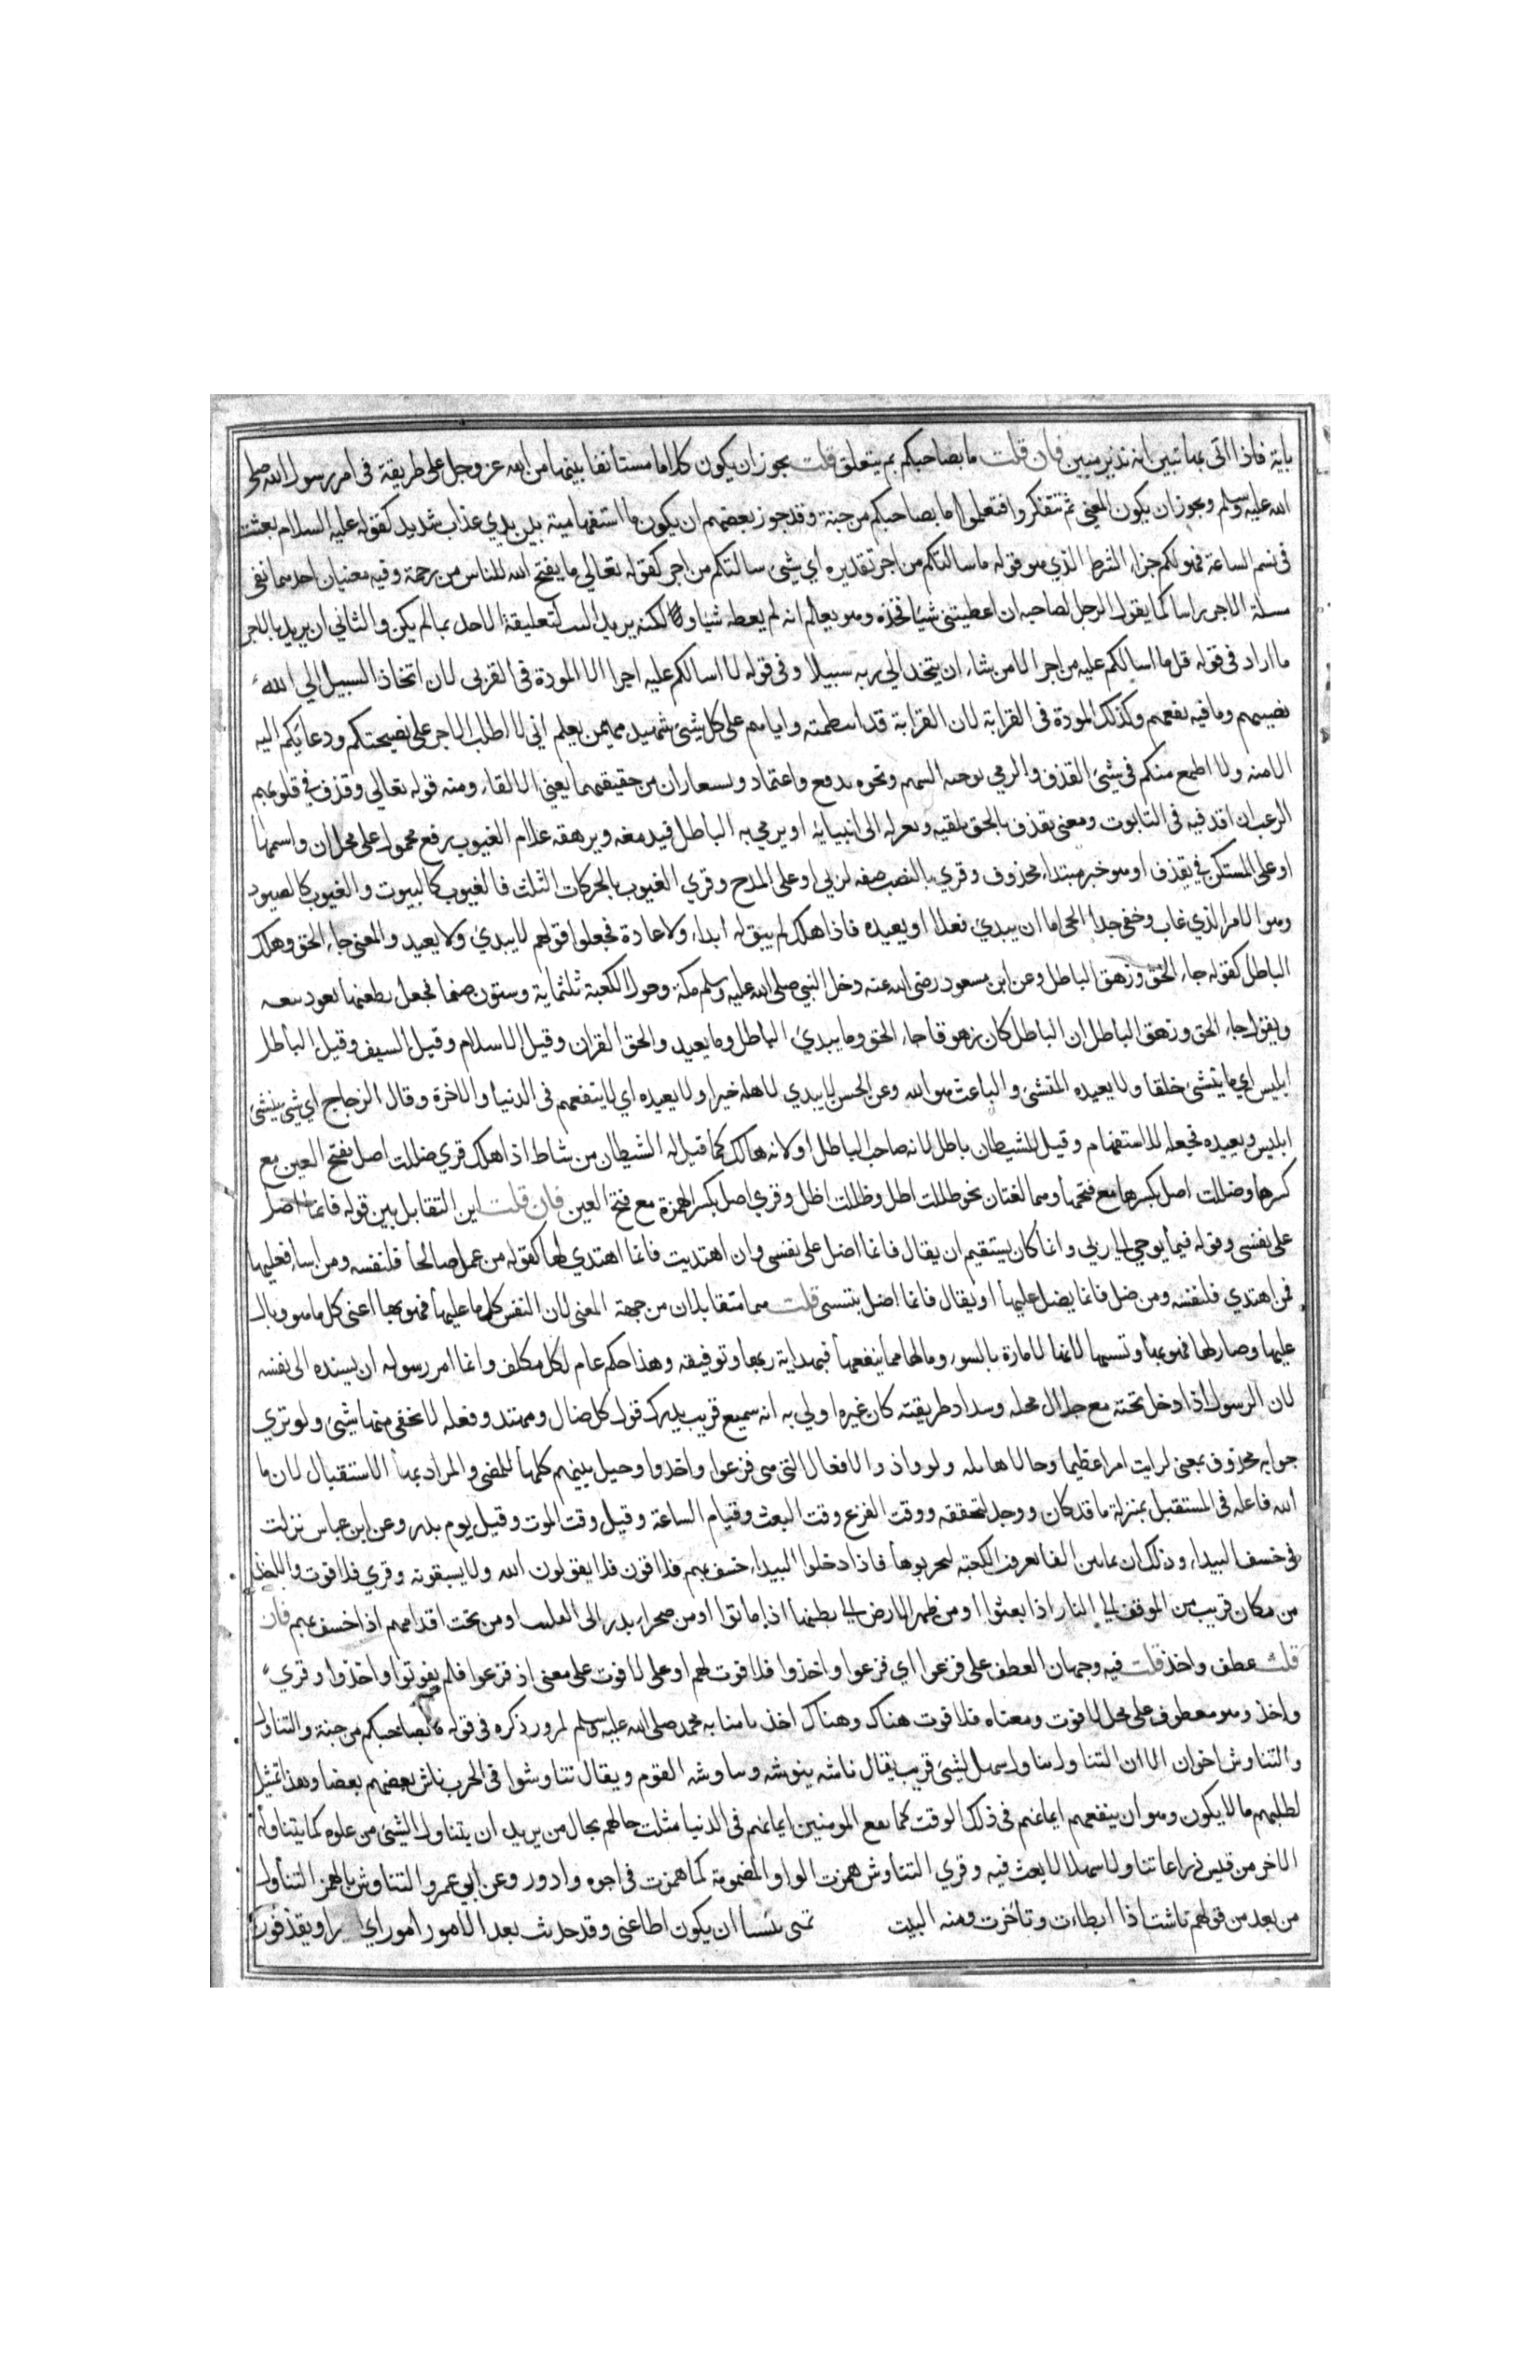 باية فاذا اتى بها تبين انه نذير مبين فان قلت ما بصاحبكم بم يتعلق قلت يجوز ان يكون كلاما مستأنفا بينهما من الله عز وجل على طريقة فى امر رسول الله صلى
الله عليه وسلم ويجوز ان يكون المعنى ثم تتفكروا فتعلموا ما بصاحبكم من جنة وقد جوز بعضهم ان يكون ما استفهامية بين يدي عذاب شديد كقوله عليه السلام بعثت
فى نسم الساعة فهو لكم جزاء الشرط الذي هو قوله ما سالتكم من اجر تقديره اي شئ سالتكم من اجر كقوله تعالى ما يفتح الله للناس من رحمة وفيه معنيان احدهما نفى
مسلة الاجر راسا كما يقول الرجل لصاحبه ان اعطيتنى شيا فخذه وهو يعلم انه لم يعطه شيا ولكنه يريد البت لتعليقة الاخذ بما لم يكن والثاني ان يريد بالاجر
ما اراد فى قوله قل ما اسالكم عليه من اجر الا من شاء ان يتخذ الى ربه سبيلا وفى قوله لا اسالكم عليه اجرا الا المودة فى القربى لان اتخاذ السبيل الى الله
نصيبهم وما فيه نفعهم وكذلك المودة فى القرابة لان القرابة قد انتظمته واياهم على كل شئ شهيد مهيمن يعلم اني لا اطلب الاجر على نصيحتكم ودعائكم اليه
الا منه ولا اطمع منكم فى شئ القذف والرمي توجيه السهم ونحوه بدفع واعتماد ويستعاران من حقيقتهما لمعنى الالقاء ومنه قوله تعالى وقذف في قلوبهم
الرعب ان اقذفيه فى التابوت ومعنى يقذف بالحق يلقيه وينزله الى انبيايه او يرمي به الباطل فيدمغه ويزهقه علام الغيوب برفع محمول على محل ان واسمها
او على المستكن في يقذف او هو خبر مبتداء محذوف وقري بالنصب صفة لربي او على المدح وقري الغيوب بالحركات الثلث فالغيوب كالبيوت والغيوب كالصيود
وهو الامر الذي غاب وخفى جدا الحى اما ان يبدئ فعلا او يعيده فاذا هلك لم يبق له ابداء ولا اعادة فجعلوا قولهم لا يبدئ ولا يعيد والمعنى جاء الحق وهلك
الباطل كقوله جاء الحق وزهق الباطل وعن ابن مسعود رضى الله عنه دخل النبي صلى الله عليه وسلم مكة وحول الكعبة ثلثماية وستون صنما فجعل يطعنها بعود نبعه
ويقول جاء الحق وزهق الباطل ان الباطل كان زهوقا جاء الحق وما يبدئ الباطل وما يعيد والحق القران وقيل الاسلام وقيل السيف وقيل الباطل
ابليس اي ما ينشئ خلقا ولا يعيده المنشئ والباعث هو الله وعن الحسن لا يبدي لاهله خيرا ولا يعيده اي لا ينفعهم فى الدنيا والاخرة وقال الزجاج اي شئ ينشئ
ابليس ويعيده فجعله للاستفهام وقيل للشيطان باطل لانه صاحب الباطل او لانه هالك كما قيل له الشيطان من شاط اذا هلك قري ضللت اضل بفتح العين مع
كسرها وضللت اضل بكسرها مع فتحها وهما لغتان نحو ظللت اظل وظللت اظل وقري اضل بكسر الهمزة مع فتح العين فان قلت اين التقابل بين قوله فانما اضل
على نفسى وقوله فيما يوحي الي ربي وانما كان يستقيم ان يقال فانما اضل على نفسى وان اهتديت فانما اهتدي لها كقوله من عمل صالحا فلنفسه ومن اساء فعليها
فمن اهتدي فلنفسه ومن ضل فانما يضل عليها او يقال فانما اضل بنفسى قلت هما متقابلان من جهة المعنى لان النفس كل ما عليها فهو بها اعنى كل ما هو وبال
عليها وضار لها فهو بها وتسبيها لانها الامارة بالسوء وما لها مما ينفعها فبهداية ربها وتوفيقه وهذا حكم عام لكل مكلف وانما امر رسوله ان يسنده الى نفسه
لان الرسول اذا دخل تحته مع جلال محله وسداد طريقته كان غيره اولي به انه سميع قريب يدرك قول كل ضال ومهتد وفعله لا يخفى منهما شئ ولو تري
جوابه محذوف يعنى لرايت امرا عظيما وحالا هايلة ولو واذ والافعال التى هى فزعوا واخذوا وحيل بينهم كلها للمضى والمراد بها الاستقبال لان ما
الله فاعله فى المستقبل بمنزلة ما قد كان ووجد لتحققه ووقت الفزع وقت البعث وقيام الساعة وقيل وقت الموت وقيل يوم بدر وعن ابن عباس نزلت
فى خسف البيداء وذلك ان ثمانين الفا يغزون الكعبة ليخربوها فاذا دخلوا البيداء خسف بهم فلا فوت فلا يفوتون الله ولا يسبقونه وقري فلا فوت والاخذ
من مكان قريب من الموقف الى النار اذا بعثوا او من ظهر الارض الى بطنها اذا ماتوا او من صحراء بدر الى القليب او من تحت اقدامهم اذا خسف بهم فان
قلت عطف واخذ قلت فيه وجهان العطف على فزعوا اي فزعوا واخذوا فلا فوت لهم او على لا فوت على معنى اذ فزعوا فلم يفوتوا واخذوا وقري
واخذ وهو معطوف على محل لا فوت ومعناه فلا فوت هناك وهناك اخذ امنا به محمد صلى الله عليه وسلم لمرور ذكره فى قوله ما بصاحبكم من جنة والتناول
والتناوش اخوان الا ان التناوش تناول سهل لشئ قريب يقال ناشه ينوشه وتناوشه القوم ويقال تناوشوا فى الحرب ناش بعضهم بعضا وهذا تمثيل
لطلبهم ما لا يكون وهو ان ينفعهم ايمانهم فى ذلك الوقت كما نفع المومنين ايمانهم فى الدنيا مثلت حالهم بحال من يريد ان يتناول الشئ من غلوة كما يتناوله
الاخر من قيس ذراعا تناولا سهلا لا يعث فيه وقري التناوش همزت الواو المضمومة كما همزت فى اجوه وادور وعن ابي عمرو التناوش بالهمز التناول
من بعد من قولهم ناشت اذا ابطاءت وتاخرت ومنه البيت تمنى نئيشا ان يكون اطاعنى وقد حدثت بعد الامور امور اي اخيرا ويقذفون